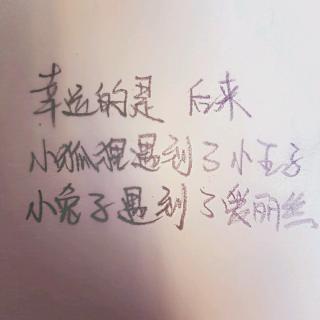 幸运的是 后来
小狐狸遇到了小王子
小兔子遇到了爱丽丝